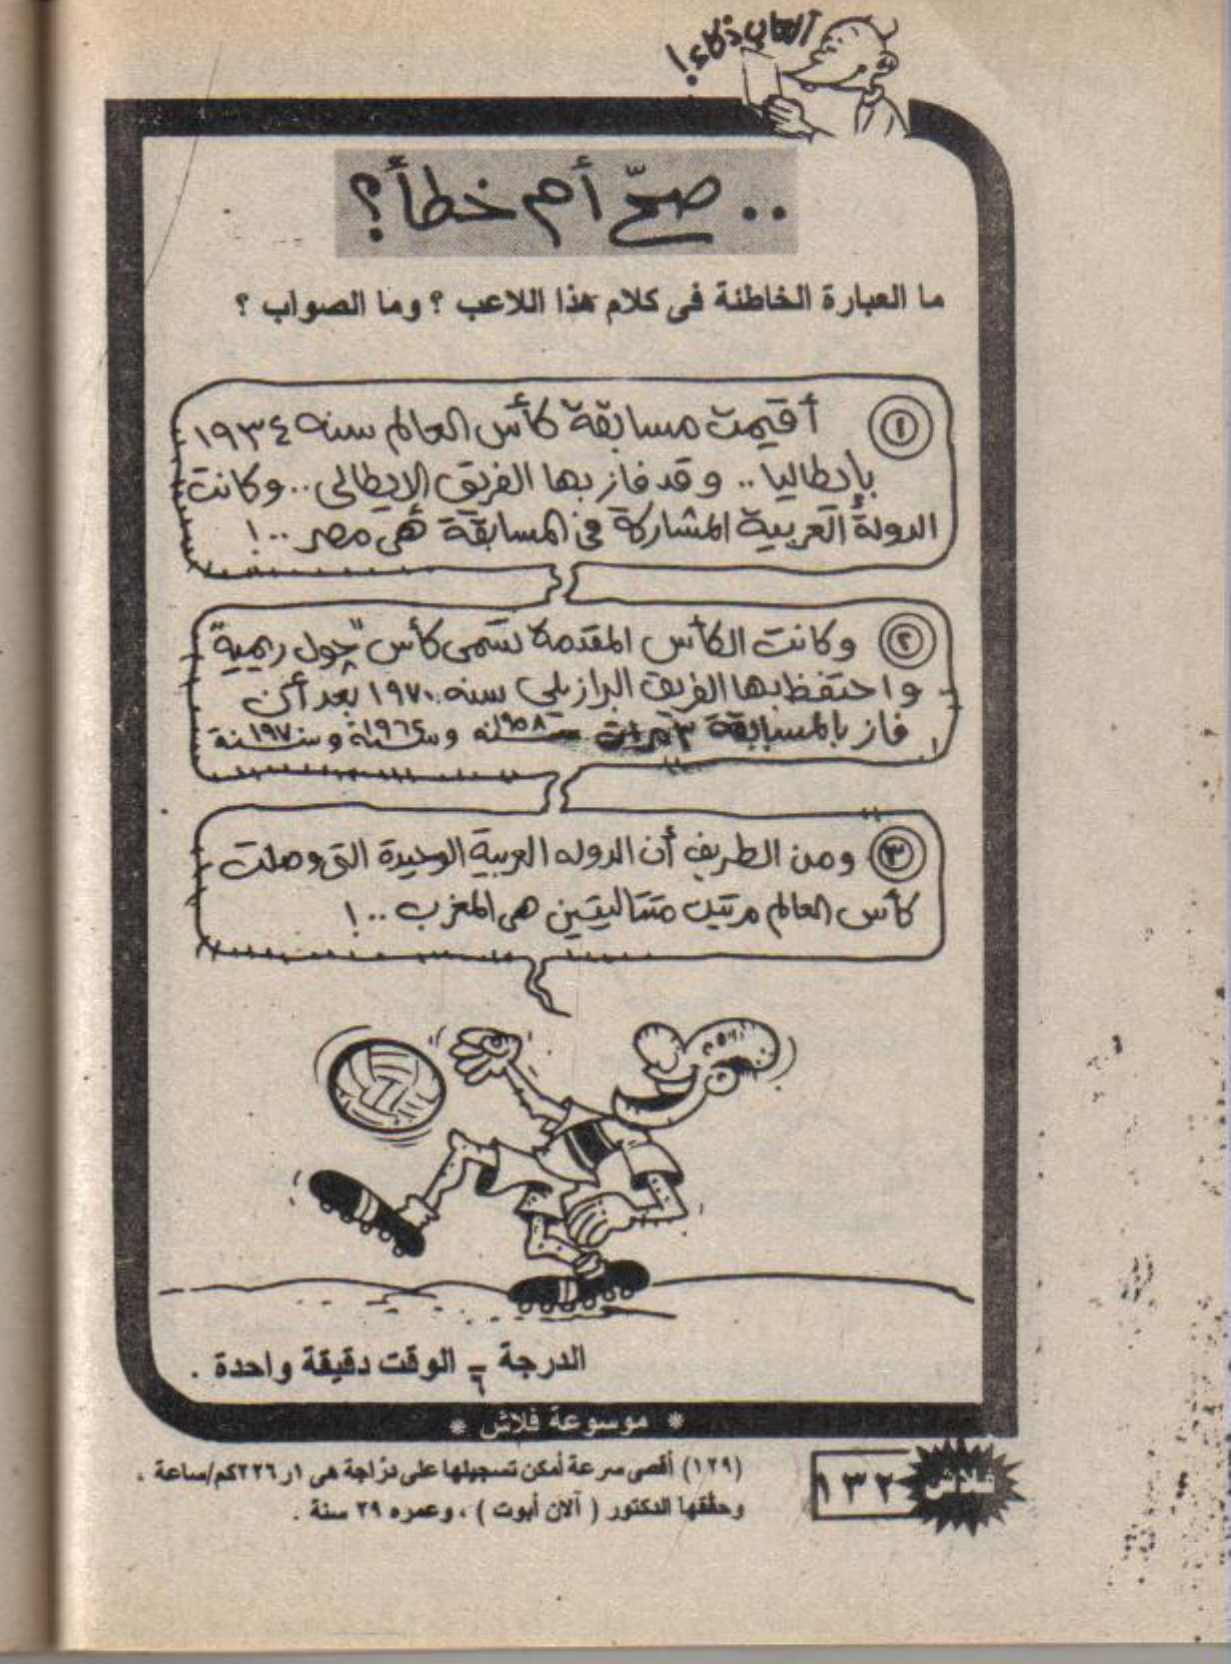 ألعاب ذكاء!
.. صحّ أم خطأ؟
ما العبارة الخاطئة فى كلام هذا اللاعب ؟ وما الصواب ؟
١ أقيمت مسابقة كأس العالم سنه ١٩٣٤
بإيطاليا .. وقد فاز بها الفريق الإيطالى .. وكانت
الدولة العربية المشاركة فى المسابقة هى مصر ..!
٢ وكانت الكأس المقدمة تسمى كأس "چول ريمية"
واحتفظ بها الفريق البرازيلى سنه ١٩٧٠ بعد أن
فاز بالمسابقة ٣ مرات سنه ١٩٥٨ وسنة ١٩٦٤ وسنة ١٩٧٠
٣ ومن الطريف أن الدوله العربية الوحيدة التى وصلت
كأس العالم مرتين متتاليتين هى المغرب ..!
الدرجة ــ ٦ الوقت دقيقة واحدة .
* موسوعة فلاش *
(١٢٩) أقصى سرعة أمكن تسجيلها على دراجة هى ١ر٢٢٦كم/ساعة .
وحققها الدكتور ( آلان أبوت ) ، وعمره ٢٩ سنة .
فلاش
١٣٢